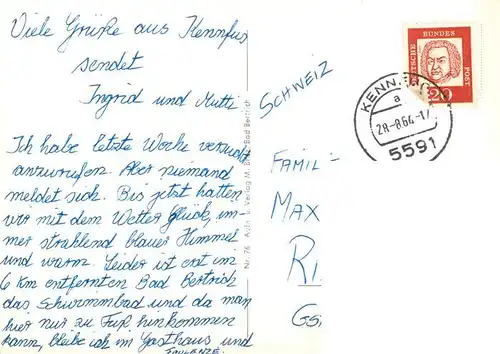 Viele Grüße aus Kennfus
sendet
Ingrid und Mutti
Ich habe letzte Woche versucht
anzurufen. Aber niemand
meldet sich. Bis jetzt hatten
wir mit dem Wetter Glück, im-
mer strahlend blauer Himmel
und warm. Leider ist erst im
6 km entfernten Bad Bertrich
das Schwimmbad und da man
hier nur zu Fuß hinkommen
kann, bleibe ich im Gasthaus und
FAULENZE.
Nr. 76 Aufn. u. Verlag M. Bad Bertrich
SCHWEIZ
FAMIL
MAX
R
GS
DEUTSCHE
BUNDES
POST
20
KENN
a
28-8.64-17
5591